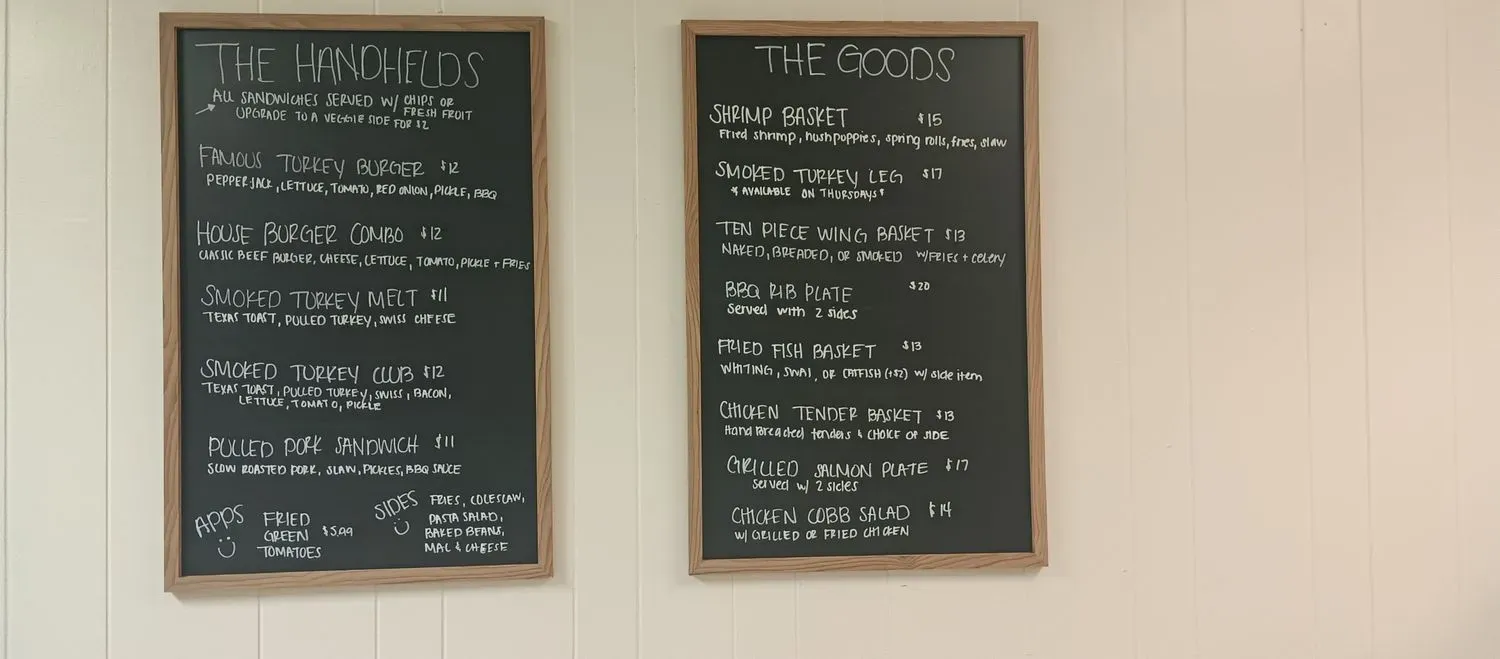 THE HANDHELDS
ALL SANDWICHES SERVED W/ CHIPS OR
FRESH FRUIT
UPGRADE TO A VEGGIE SIDE FOR $2
FAMOUS TURKEY BURGER $12
PEPPERJACK, LETTUCE, TOMATO, RED ONION, PICKLE, BBQ
HOUSE BURGER COMBO $12
CLASSIC BEEF BURGER, CHEESE, LETTUCE, TOMATO, PICKLE + FRIES
SMOKED TURKEY MELT $11
TEXAS TOAST, PULLED TURKEY, SWISS CHEESE
SMOKED TURKEY CLUB $12
TEXAS TOAST, PULLED TURKEY, SWISS, BACON,
LETTUCE, TOMATO, PICKLE
PULLED PORK SANDWICH $11
SLOW ROASTED PORK, SLAW, PICKLES, BBQ SAUCE
APPS
FRIED
GREEN
TOMATOES
$5.99
SIDES
FRIES, COLESLAW,
PASTA SALAD,
BAKED BEANS,
MAC & CHEESE
THE GOODS
SHRIMP BASKET $15
Fried shrimp, hushpuppies, spring rolls, fries, slaw
SMOKED TURKEY LEG $17
* AVAILABLE ON THURSDAYS *
TEN PIECE WING BASKET $13
NAKED, BREADED, OR SMOKED W/FRIES + celery
BBQ RIB PLATE $20
Served with 2 sides
FRIED FISH BASKET $13
WHITING, SWAI, OR CATFISH (+$2) w/ side item
CHICKEN TENDER BASKET $13
Hand Breaded tenders & CHOICE OF SIDE
GRILLED SALMON PLATE $17
Served w/ 2 sides
CHICKEN COBB SALAD $14
W/ GRILLED OR FRIED CHICKEN